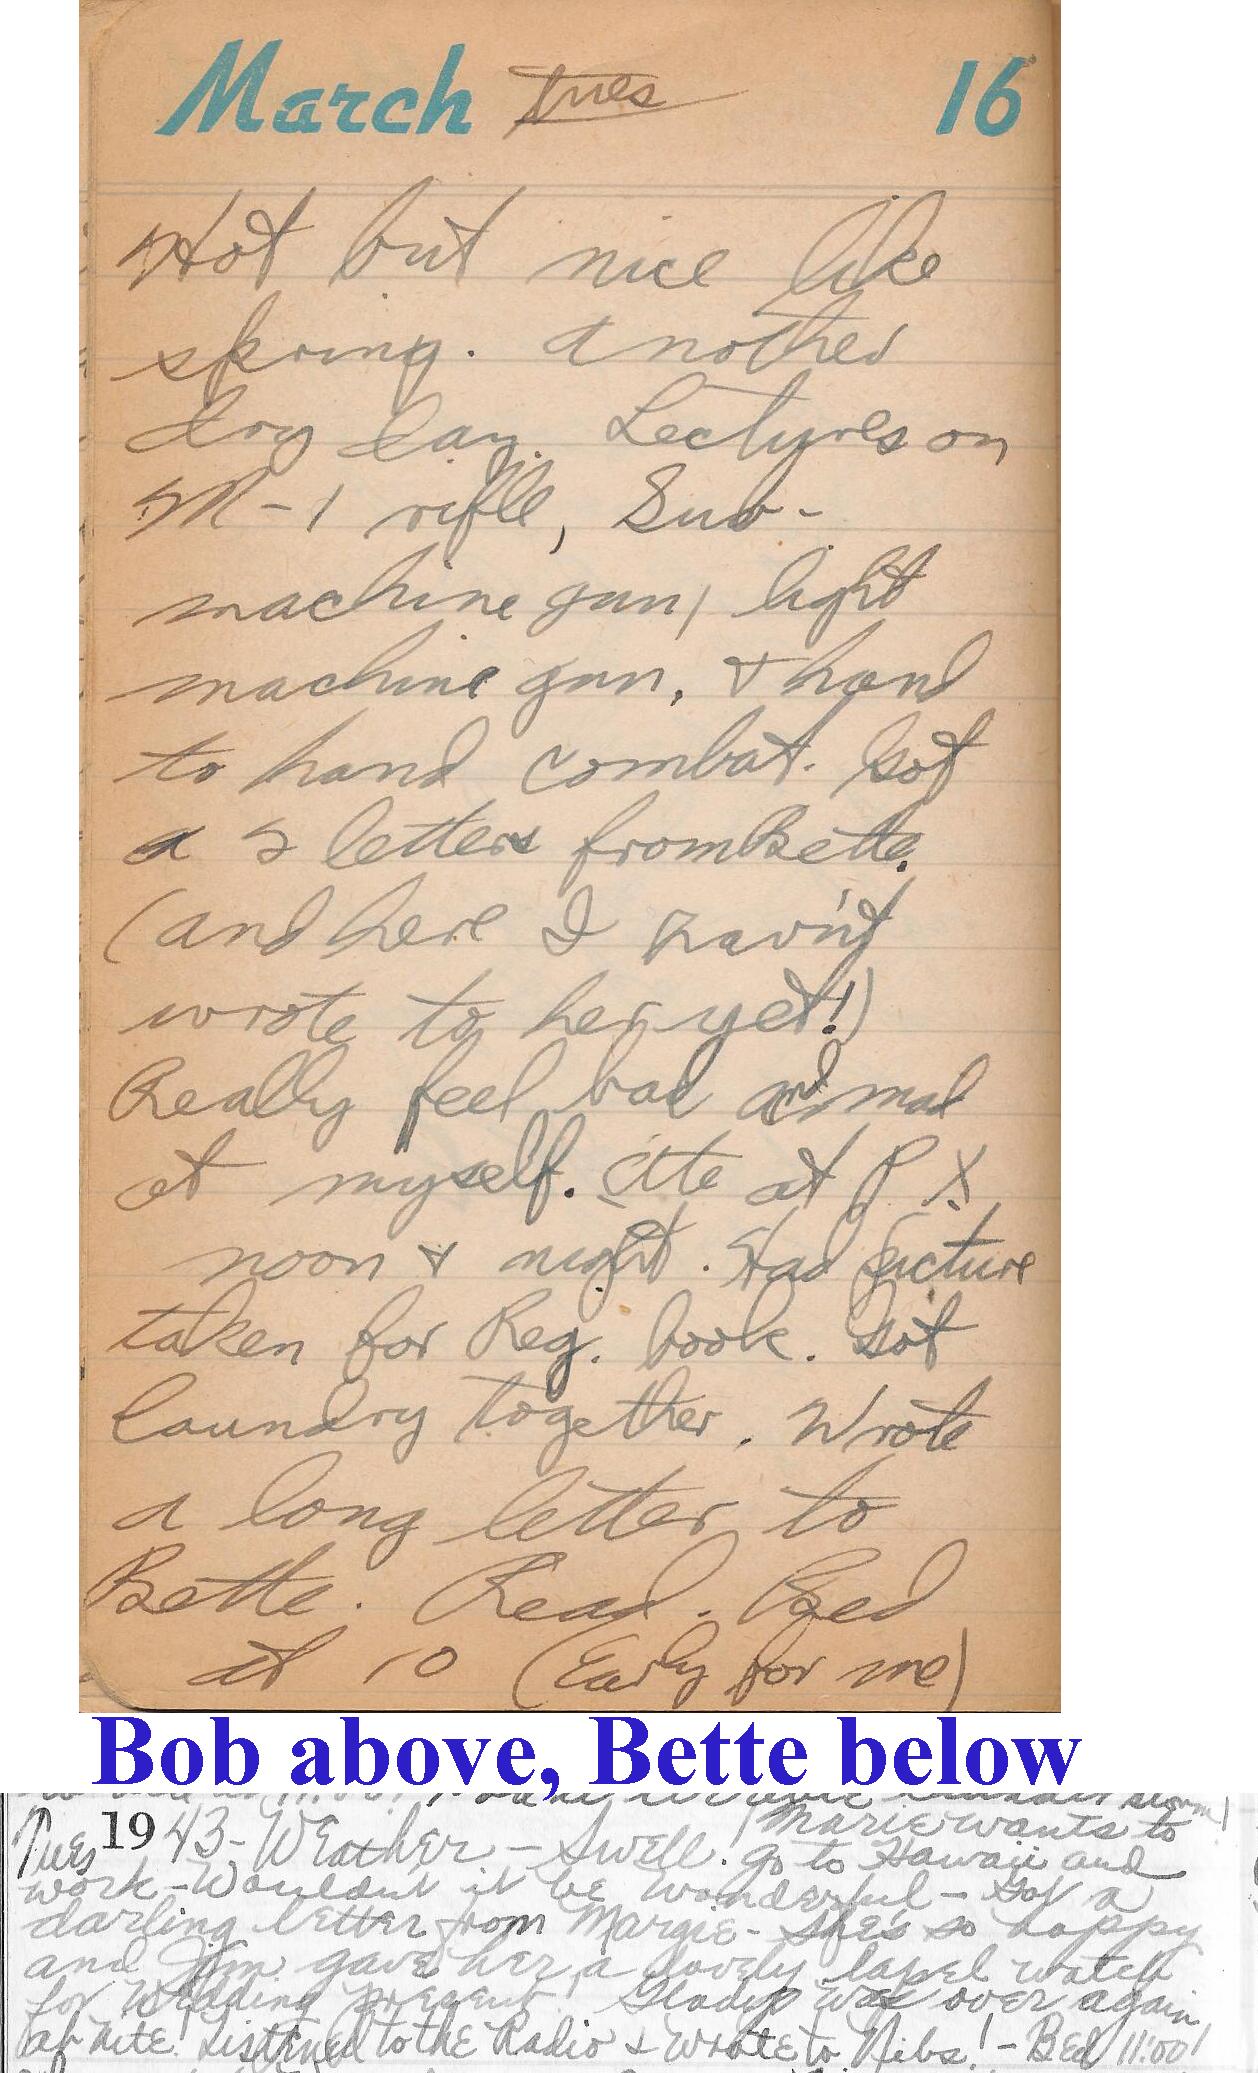 March Tues 16
Hot but nice like
spring. Another
dry day. Lectures on
M-1 rifle, Sub-
machine gun, light
machine gun, & hand
to hand combat. Got
a 2 letters from Bette.
(and here I hav'nt
wrote to her yet!)
Really feel bad and mad
at myself. Ate at P X
noon & night. Had picture
taken for Reg. book. Got
laundry together. Wrote
a long letter to
Bette. Read. Bed
at 10 (Early for me)
Bob above, Bette below
Tues 1943 - Weather - Swell. Marie wants to
go to Hawaii and
work - Wouldn't it be wonderful - Got a
darling letter from Margie - She's so happy
and Jim gave her a lovely lapel watch
for wedding present. Gladys was over again
at nite! Listened to the Radio & wrote to Nibs! - Bed 11:00!